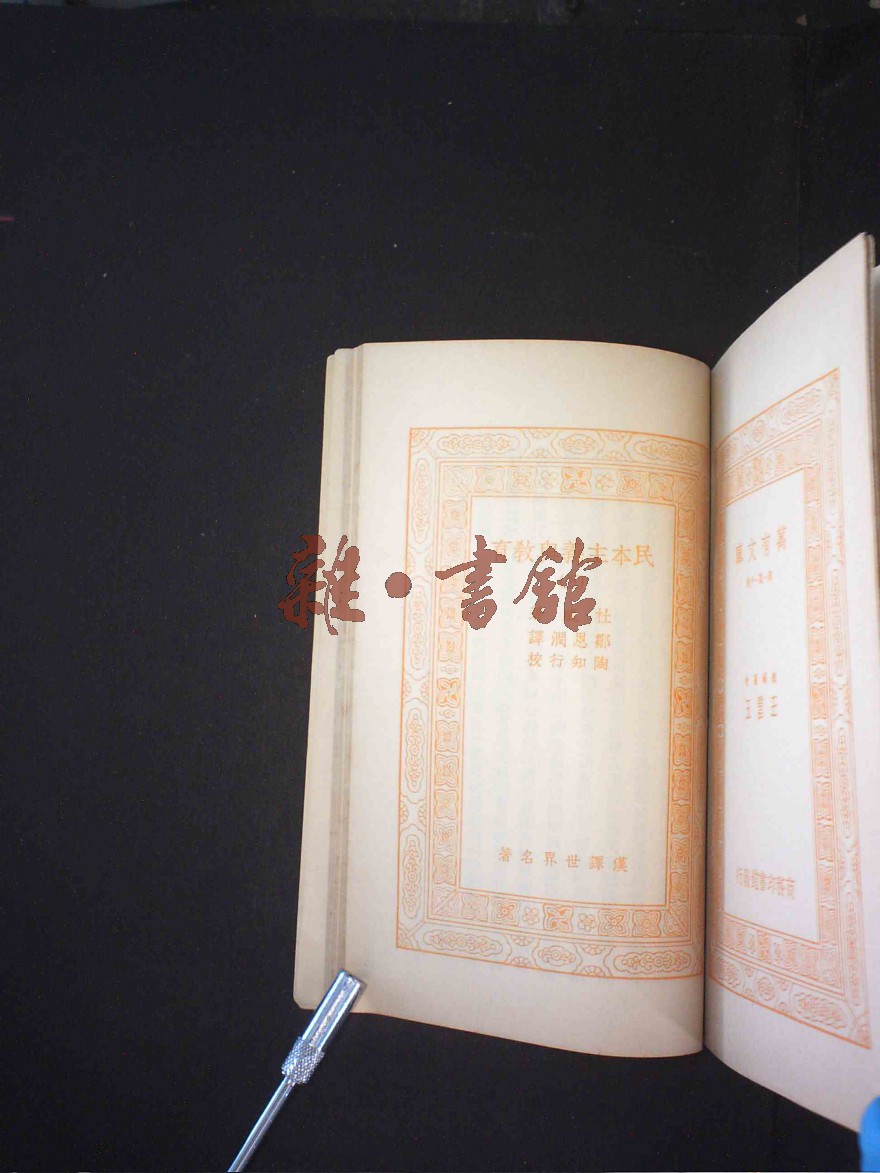 雜·書館
民本主義與教育
杜
鄒恩潤譯
陶知行校
漢譯世界名著
萬有文庫
王雲五
商務印書館發行